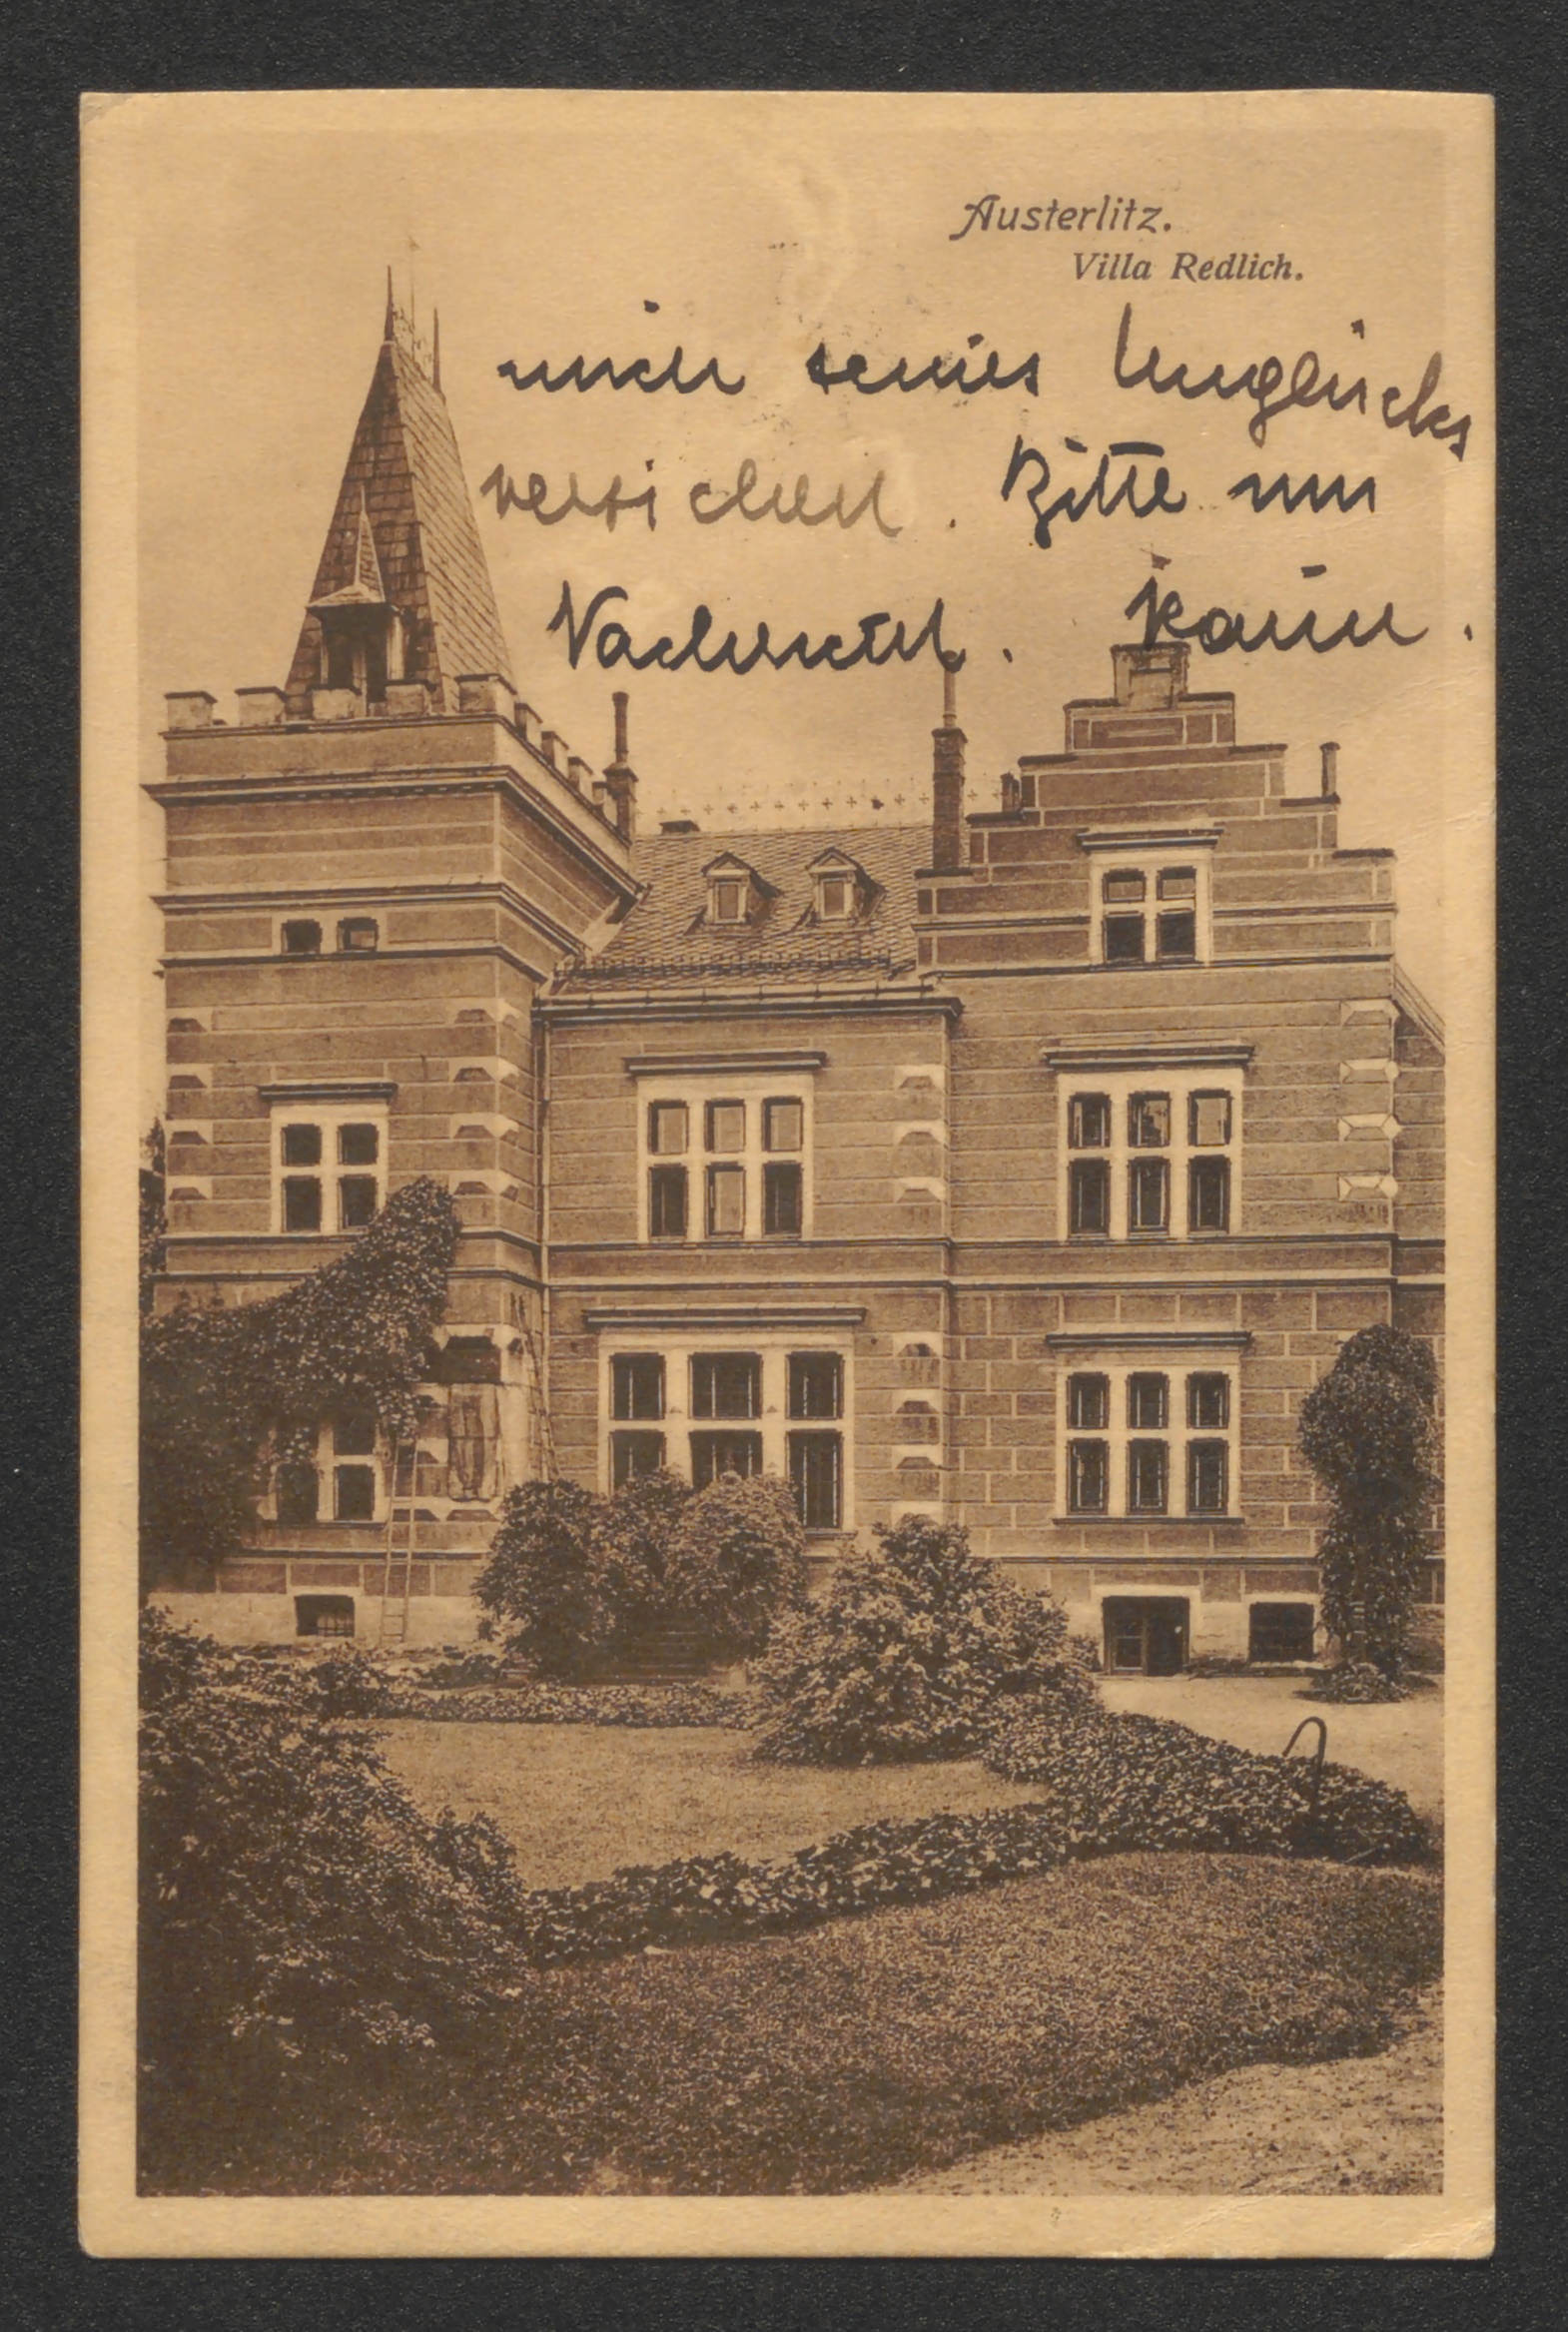 Austerlitz.
Villa Redlich.
mich seines Unglücks
versichert. Bitte um
Nachricht.